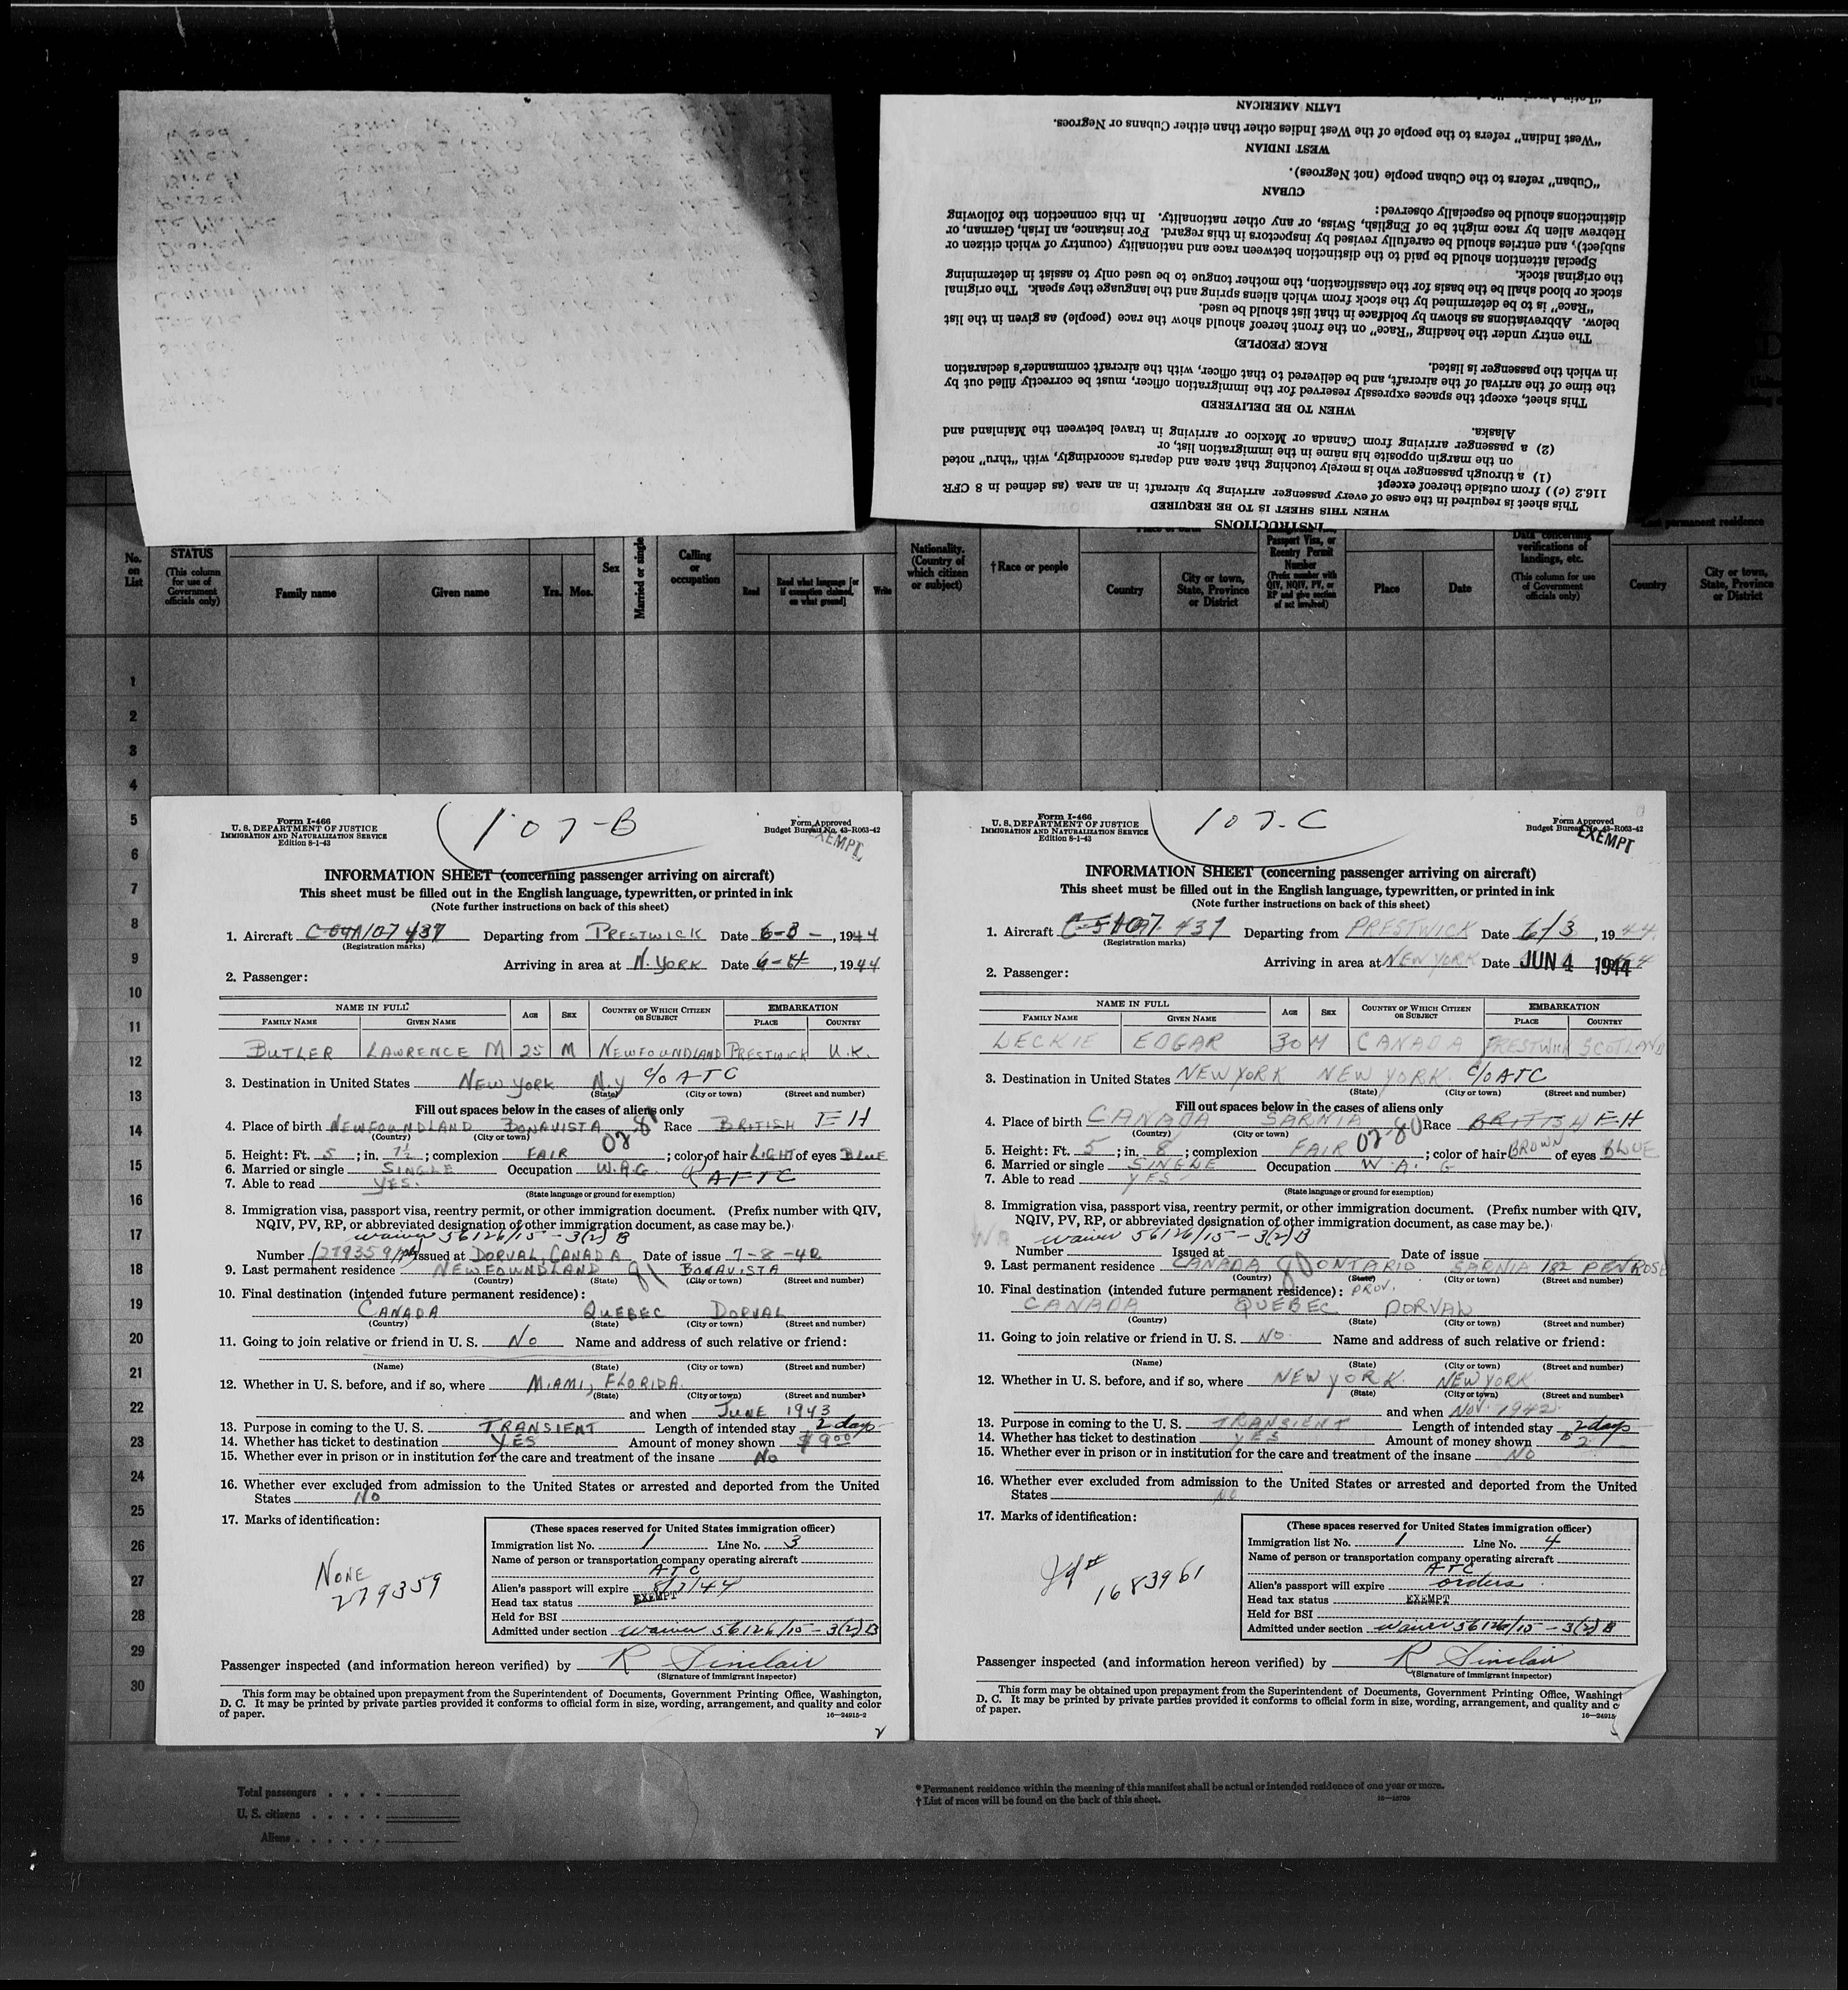 "Latin American"
LATIN AMERICAN
"West Indian" refers to the people of the West Indies other than either Cubans or Negroes.
WEST INDIAN
"Cuban" refers to the Cuban people (not Negroes).
CUBAN
distinctions should be especially observed:
Hebrew alien by race might be of English, Swiss, or any other nationality. In this connection the following
subject), and entries should be carefully revised by inspectors in this regard. For instance, an Irish, German, or
Special attention should be paid to the distinction between race and nationality (country of which citizen or
the original stock.
stock or blood shall be the basis for the classification, the mother tongue to be used only to assist in determining
"Race" is to be determined by the stock from which aliens spring and the language they speak. The original
below. Abbreviations as shown by boldface in that list should be used.
The entry under the heading "Race" on the front hereof should show the race (people) as given in the list
RACE (PEOPLE)
in which the passenger is listed.
the time of the arrival of the aircraft, and be delivered to that officer, with the aircraft commander's declaration
This sheet, except the spaces expressly reserved for the immigration officer, must be correctly filled out by
WHEN TO BE DELIVERED
Alaska.
(2) a passenger arriving from Canada or Mexico or arriving in travel between the Mainland and
on the margin opposite his name in the immigration list, or
(1) a through passenger who is merely touching that area and departs accordingly, with "thru" noted
116.2 (c)) from outside thereof except
This sheet is required in the case of every passenger arriving by aircraft in an area (as defined in 8 CFR
WHEN THIS SHEET IS TO BE REQUIRED
INSTRUCTIONS
No. on List
STATUS (This column for use of Government officials only)
Family name Given name Yrs. Mos. Sex Married or single
Calling or occupation
Read Read what language [or if exemption claimed, on what ground] Write
Nationality. (Country of which citizen or subject)
†Race or people
Country City or town, State, Province or District
Passport Visa, or Reentry Permit Number (Prefix number with QIV, NQIV, PV, or RP and give section of act involved)
Place Date
Data concerning verifications of landings, etc. (This column for use of Government officials only)
permanent residence
Country City or town, State, Province or District
1
2
3
4
5
6
7
8
9
10
11
12
13
14
15
16
17
18
19
20
21
22
23
24
25
26
27
28
29
30
Form I-466
U. S. DEPARTMENT OF JUSTICE
IMMIGRATION AND NATURALIZATION SERVICE
Edition 8-1-43
107-B
Form Approved
Budget Bureau No. 43-R063-42
EXEMPT
INFORMATION SHEET (concerning passenger arriving on aircraft)
This sheet must be filled out in the English language, typewritten, or printed in ink
(Note further instructions on back of this sheet)
1. Aircraft C-54A107437 Departing from PRESTWICK Date 6-3-, 1944
(Registration marks)
Arriving in area at N. YORK Date 6-4, 1944
2. Passenger:
NAME IN FULL AGE SEX COUNTRY OF WHICH CITIZEN OR SUBJECT EMBARKATION
FAMILY NAME GIVEN NAME PLACE COUNTRY
BUTLER LAWRENCE M 25 M NEWFOUNDLAND PRESTWICK U.K.
3. Destination in United States NEW YORK N.Y c/o ATC
(State) (City or town) (Street and number)
Fill out spaces below in the cases of aliens only
4. Place of birth NEWFOUNDLAND BONAVISTA Race BRITISH EH
(Country) (City or town) 02 81
5. Height: Ft. 5; in. 7½; complexion FAIR; color of hair LIGHT of eyes BLUE
6. Married or single SINGLE Occupation W.A.G. RAFTC
7. Able to read YES.
(State language or ground for exemption)
8. Immigration visa, passport visa, reentry permit, or other immigration document. (Prefix number with QIV,
NQIV, PV, RP, or abbreviated designation of other immigration document, as case may be.)
waiver 56126/15-3(2) B
Number 279359 Issued at DORVAL, CANADA Date of issue 7-8-42
9. Last permanent residence NEWFOUNDLAND 81 BONAVISTA
(Country) (State) (City or town) (Street and number)
10. Final destination (intended future permanent residence):
CANADA QUEBEC DORVAL
(Country) (State) (City or town) (Street and number)
11. Going to join relative or friend in U. S. No Name and address of such relative or friend:
(Name) (State) (City or town) (Street and number)
12. Whether in U. S. before, and if so, where MIAMI, FLORIDA.
(State) (City or town) (Street and number)
and when JUNE 1943
13. Purpose in coming to the U. S. TRANSIENT Length of intended stay 2 days
14. Whether has ticket to destination YES Amount of money shown $9.00
15. Whether ever in prison or in institution for the care and treatment of the insane No
16. Whether ever excluded from admission to the United States or arrested and deported from the United
States No
17. Marks of identification:
NONE
279359
(These spaces reserved for United States immigration officer)
Immigration list No. 1 Line No. 3
Name of person or transportation company operating aircraft
ATC
Alien's passport will expire 8/7/44
Head tax status EXEMPT
Held for BSI
Admitted under section waiver 56126/15-3(2) B
Passenger inspected (and information hereon verified) by R Sinclair
(Signature of immigrant inspector)
This form may be obtained upon prepayment from the Superintendent of Documents, Government Printing Office, Washington,
D. C. It may be printed by private parties provided it conforms to official form in size, wording, arrangement, and quality and color
of paper. 16—24915-2
Form I-466
U. S. DEPARTMENT OF JUSTICE
IMMIGRATION AND NATURALIZATION SERVICE
Edition 8-1-43
107-C
Form Approved
Budget Bureau No. 43-R063-42
EXEMPT
INFORMATION SHEET (concerning passenger arriving on aircraft)
This sheet must be filled out in the English language, typewritten, or printed in ink
(Note further instructions on back of this sheet)
1. Aircraft 437 Departing from PRESTWICK Date 6/3, 1944.
(Registration marks)
Arriving in area at NEW YORK Date JUN 4 1944
2. Passenger:
NAME IN FULL AGE SEX COUNTRY OF WHICH CITIZEN OR SUBJECT EMBARKATION
FAMILY NAME GIVEN NAME PLACE COUNTRY
LECKIE EDGAR 30 M CANADA PRESTWICK SCOTLAND
3. Destination in United States NEW YORK NEW YORK. c/o ATC
(State) (City or town) (Street and number)
Fill out spaces below in the cases of aliens only
4. Place of birth CANADA SARNIA Race BRITISH EH
(Country) (City or town) 02-80
5. Height: Ft. 5; in. 8; complexion FAIR; color of hair BROWN of eyes BLUE
6. Married or single SINGLE Occupation W. A. G
7. Able to read YES
(State language or ground for exemption)
8. Immigration visa, passport visa, reentry permit, or other immigration document. (Prefix number with QIV,
NQIV, PV, RP, or abbreviated designation of other immigration document, as case may be.)
WA waiver 56126/15-3(2) B
Number Issued at Date of issue
9. Last permanent residence CANADA 80 ONTARIO SARNIA 182 PENROSE
(Country) (State) (City or town) (Street and number)
10. Final destination (intended future permanent residence): PROV.
CANADA QUEBEC DORVAL
(Country) (State) (City or town) (Street and number)
11. Going to join relative or friend in U. S. NO. Name and address of such relative or friend:
(Name) (State) (City or town) (Street and number)
12. Whether in U. S. before, and if so, where NEW YORK. NEW YORK
(State) (City or town) (Street and number)
and when NOV. 1942.
13. Purpose in coming to the U. S. TRANSIENT Length of intended stay 2 days
14. Whether has ticket to destination YES Amount of money shown $2
15. Whether ever in prison or in institution for the care and treatment of the insane NO
16. Whether ever excluded from admission to the United States or arrested and deported from the United
States NO
17. Marks of identification:
Id #
1683961
(These spaces reserved for United States immigration officer)
Immigration list No. 1 Line No. 4
Name of person or transportation company operating aircraft
ATC
Alien's passport will expire orders
Head tax status EXEMPT
Held for BSI
Admitted under section waiver 56126/15-3(2) B
Passenger inspected (and information hereon verified) by R Sinclair
(Signature of immigrant inspector)
This form may be obtained upon prepayment from the Superintendent of Documents, Government Printing Office, Washingt
D. C. It may be printed by private parties provided it conforms to official form in size, wording, arrangement, and quality and c
of paper. 16—24915
Total passengers
U. S. citizens
Aliens
* Permanent residence within the meaning of this manifest shall be actual or intended residence of one year or more.
† List of races will be found on the back of this sheet.